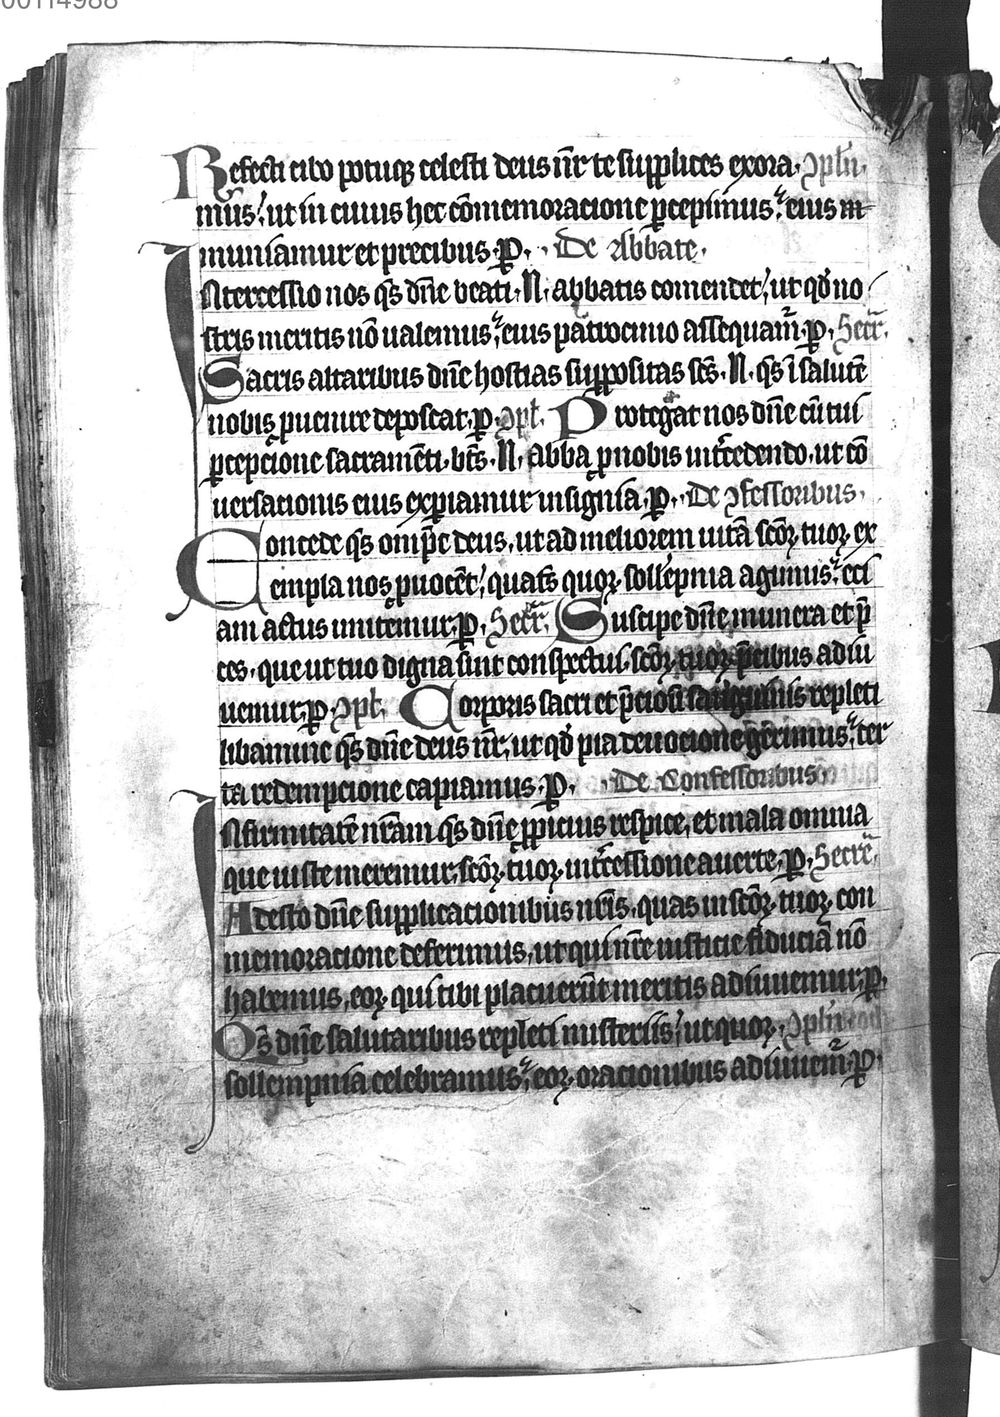 00114988
Refecti cibo potuq̨ celesti deus nr̄ te supplices exora. ꝯpln̄.
mus: ut in cuius hec cōmemoracione ꝑcepimus: eius m
muniamur et precibus. ꝑ. De Abbate.
Ntercessio nos q̄s dn̄e beati. N. abbatis comendet: ut qd̄ no
stris meritis nō ualemus: eius patrocinio assequam̄. ꝑ. Secr̄.
Sacris altaribus dn̄e hostias suppositas sc̄s. N. q̄s ī salutē
nobis ꝓuenire deposcat. ꝑ. ꝯpl̄. Protegat nos dn̄e cū tui
ꝑcepcione sacramēti. bt̄s. N. abba ꝓ nobis int̄cedendo. ut cō
uersacionis eius experiamur insignia. ꝑ. De ꝯfessoribus.
Concede q̄s omp̄c deus. ut ad meliorem uitā scōꝝ tuoꝝ ex
empla nos ꝓuocēt: quat̄s quoꝝ sollēpnia agimus: eci
am actus imitemur. ꝑ. Secr̄. Suscipe dn̄e munera et p̄
ces. que ut tuo digna sint conspectui. scōꝝ tuoꝝ p̄cibus adiu
uemur. ꝑ. ꝯpl̄. Corporis sacri et p̄ciosi sanguinis repleti
libamine q̄s dn̄e deus nr̄. ut qd̄ pia deuocione gerimus: cer
ta redempcione capiamus. ꝑ. De Confessoribus
Nfirmitatē nr̄am q̄s dn̄e ꝓpicius respice, et mala omnia
que iuste meremur. scōꝝ tuoꝝ int̄cessione auerte. ꝑ. Secrē.
Adesto dn̄e supplicacionibus nr̄is. quas in scōꝝ tuoꝝ con
memoracione deferimus, ut qui nr̄e iusticie fiduciā nō
habemus, eoꝝ qui tibi placuerūt meritis adiuuemur. ꝑ.
Q̄s dn̄e salutaribus repleti misteriis: ut quoꝝ. ꝯpln̄
sollempnia celebramus: eoꝝ oracionibus adiuuem̄. ꝑ.